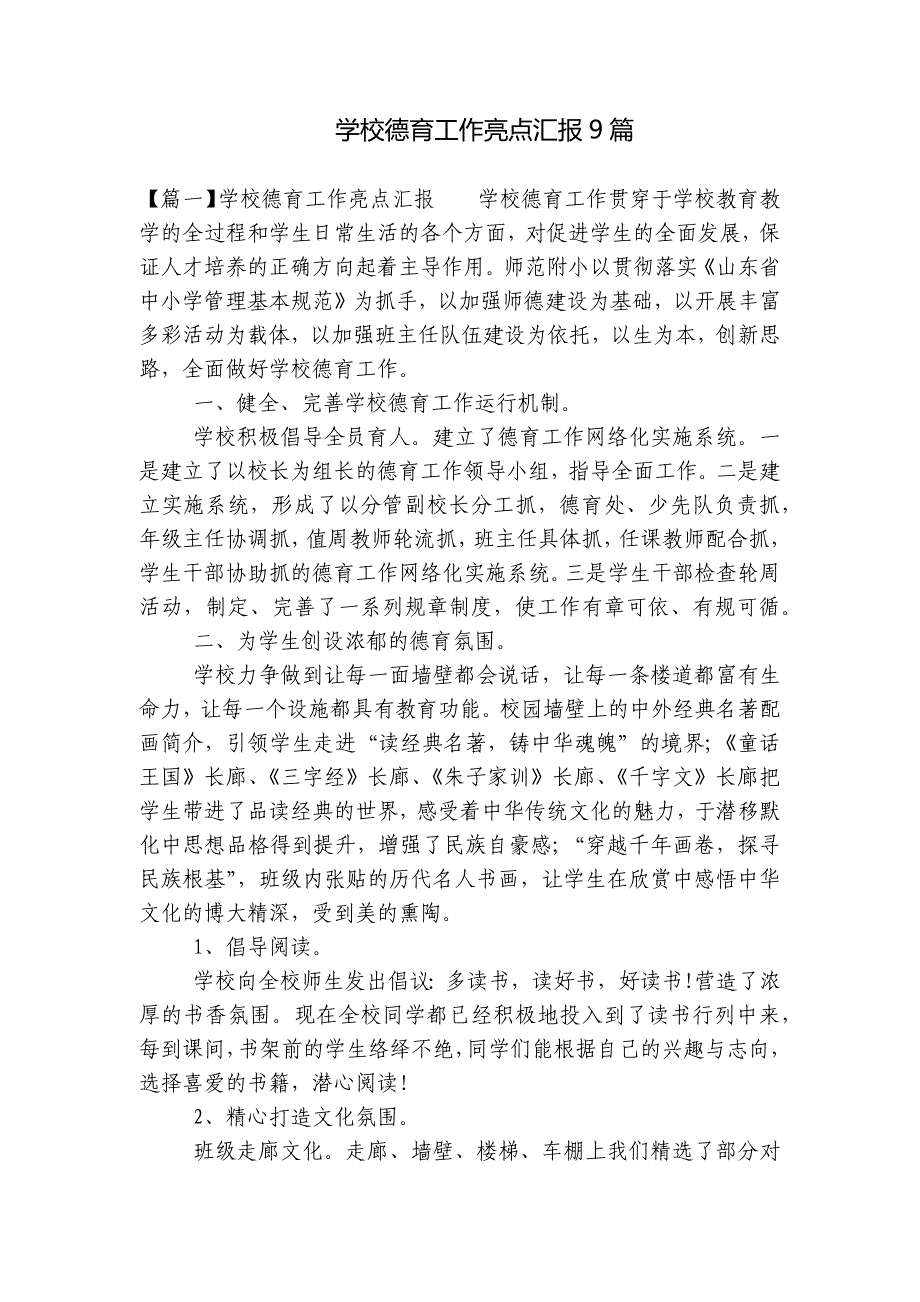 学校德育工作亮点汇报 9 篇
【篇一】学校德育工作亮点汇报  学校德育工作贯穿于学校教育教
学的全过程和学生日常生活的各个方面，对促进学生的全面发展，保
证人才培养的正确方向起着主导作用。师范附小以贯彻落实《山东省
中小学管理基本规范》为抓手，以加强师德建设为基础，以开展丰富
多彩活动为载体，以加强班主任队伍建设为依托，以生为本，创新思
路，全面做好学校德育工作。
一、健全、完善学校德育工作运行机制。
学校积极倡导全员育人。建立了德育工作网络化实施系统。一
是建立了以校长为组长的德育工作领导小组，指导全面工作。二是建
立实施系统，形成了以分管副校长分工抓，德育处、少先队负责抓，
年级主任协调抓，值周教师轮流抓，班主任具体抓，任课教师配合抓，
学生干部协助抓的德育工作网络化实施系统。三是学生干部检查轮周
活动，制定、完善了一系列规章制度，使工作有章可依、有规可循。
二、为学生创设浓郁的德育氛围。
学校力争做到让每一面墙壁都会说话，让每一条楼道都富有生
命力，让每一个设施都具有教育功能。校园墙壁上的中外经典名著配
画简介，引领学生走进“读经典名著，铸中华魂魄”的境界；《童话
王国》长廊、《三字经》长廊、《朱子家训》长廊、《千字文》长廊把
学生带进了品读经典的世界，感受着中华传统文化的魅力，于潜移默
化中思想品格得到提升，增强了民族自豪感；“穿越千年画卷，探寻
民族根基”，班级内张贴的历代名人书画，让学生在欣赏中感悟中华
文化的博大精深，受到美的熏陶。
1、倡导阅读。
学校向全校师生发出倡议：多读书，读好书，好读书！营造了浓
厚的书香氛围。现在全校同学都已经积极地投入到了读书行列中来，
每到课间，书架前的学生络绎不绝，同学们能根据自己的兴趣与志向，
选择喜爱的书籍，潜心阅读！
2、精心打造文化氛围。
班级走廊文化。走廊、墙壁、楼梯、车棚上我们精选了部分对